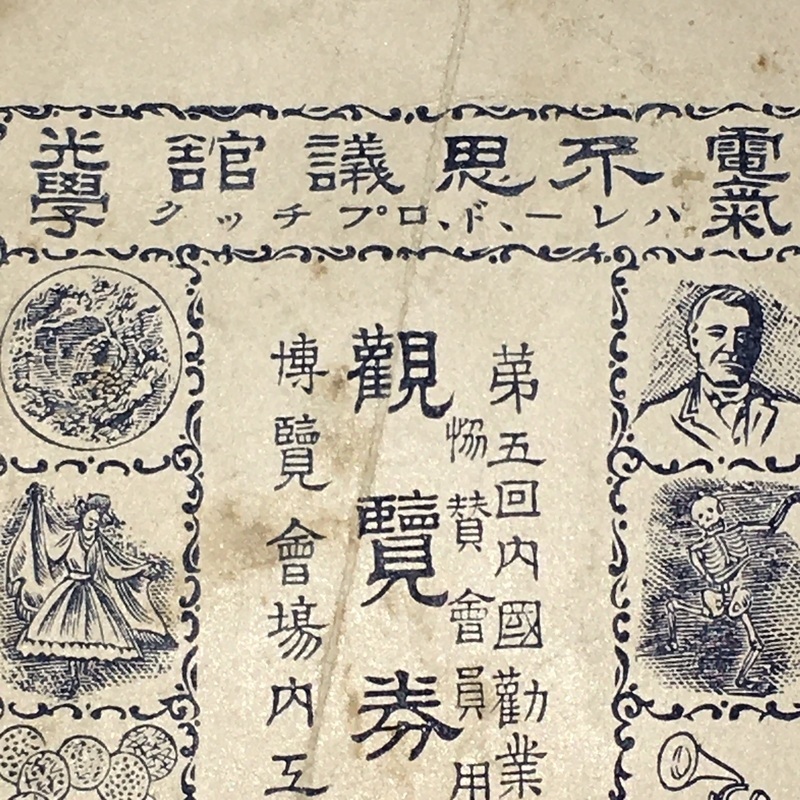 電氣
不思議館
パレー、ド、ロプチック
光學
第五回内國勸業
協賛會員用
觀覽券
博覽會場内工